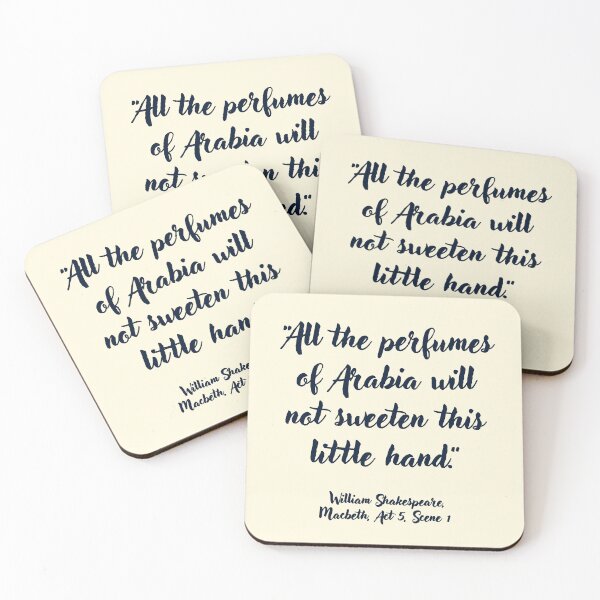 "All the perfumes
of Arabia will
not sweeten thi
nd."
"All the perfumes
of Arabia will
not sweeten this
little hand."
"All the perfumes
of Arabia will
not sweeten this
little han
William Shake
Macbeth, Act
"All the perfumes
of Arabia will
not sweeten this
little hand."
William Shakespeare,
Macbeth, Act 5, Scene 1